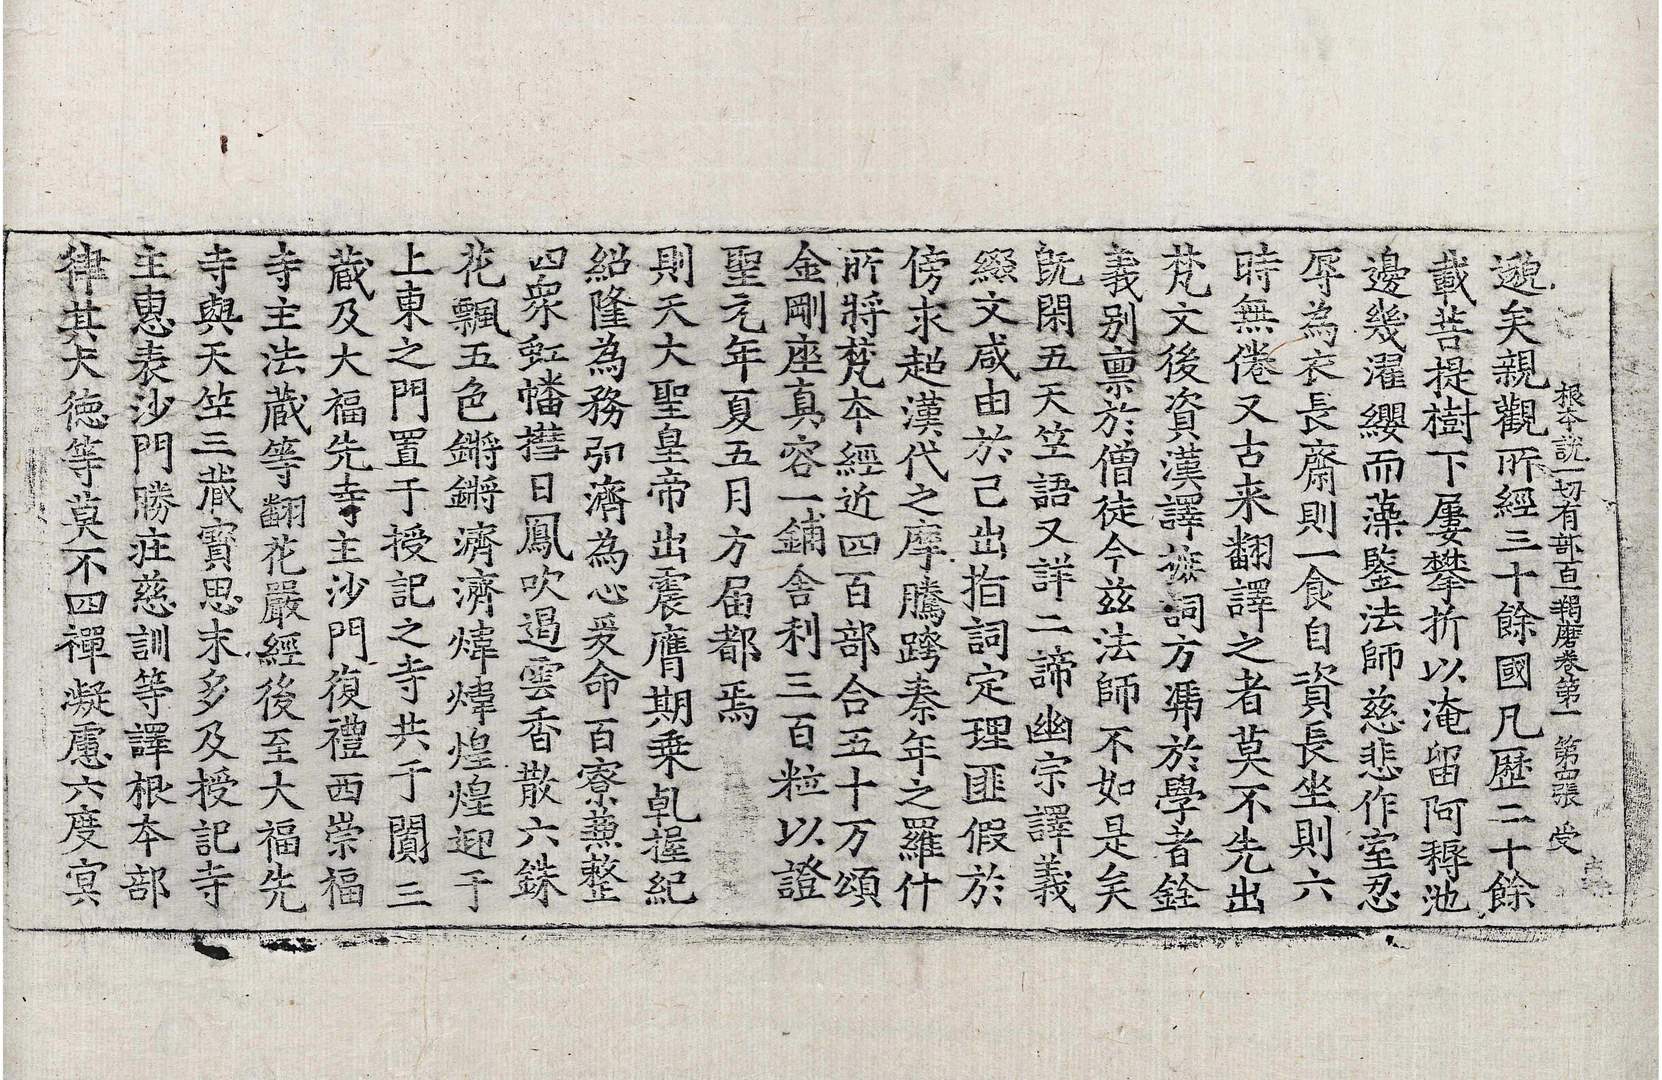 根本說一切有部百一羯磨卷第一 第四張 受
邈矣親觀所經三十餘國凡歷二十餘
載菩提樹下屢攀折以淹留阿耨池
邊幾濯纓而藻鑒法師慈悲作室忍
辱為衣長齋則一食自資長坐則六
時無倦又古来翻譯之者莫不先出
梵文後資漢譯摭詞方馮於學者銓
義別禀於僧徒今兹法師不如是矣
既閑五天竺語又詳二諦幽宗譯義
綴文咸由於己出指詞定理匪假於
傍求超漢代之摩騰跨秦年之羅什
所將梵本經近四百部合五十万頌
金剛座真容一鋪舍利三百粒以證
聖元年夏五月方届都焉
則天大聖皇帝出震膺期乗乹握紀
紹隆為務弘濟為心爰命百寮兼整
四衆虹幡㬱日鳳吹遏雲香散六銖
花飄五色鏘鏘濟濟煒煒煌煌迎于
上東之門置于授記之寺共于闐三
蔵及大福先寺主沙門復禮西崇福
寺主法蔵等翻花嚴經後至大福先
寺與天竺三蔵寳思末多及授記寺
主惠表沙門勝莊慈訓等譯根本部
律其大徳等莫不四禪凝慮六度㝠